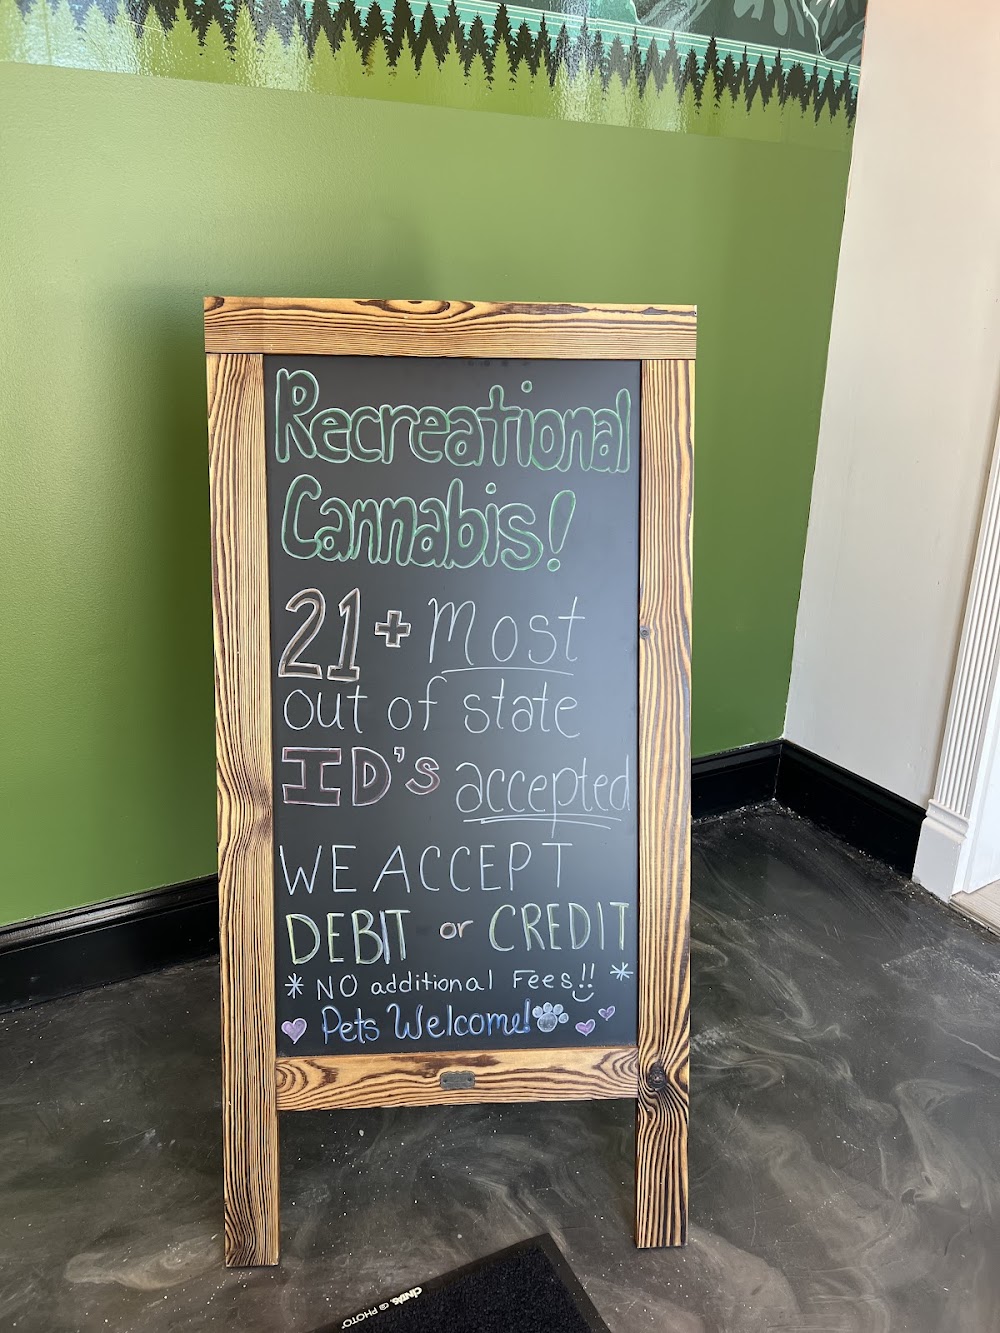 Recreational
Cannabis!
21+ Most
out of state
ID's accepted
WE ACCEPT
DEBIT or CREDIT
* NO additional Fees!! *
Pets Welcome!
CINTAS @ PHOTO